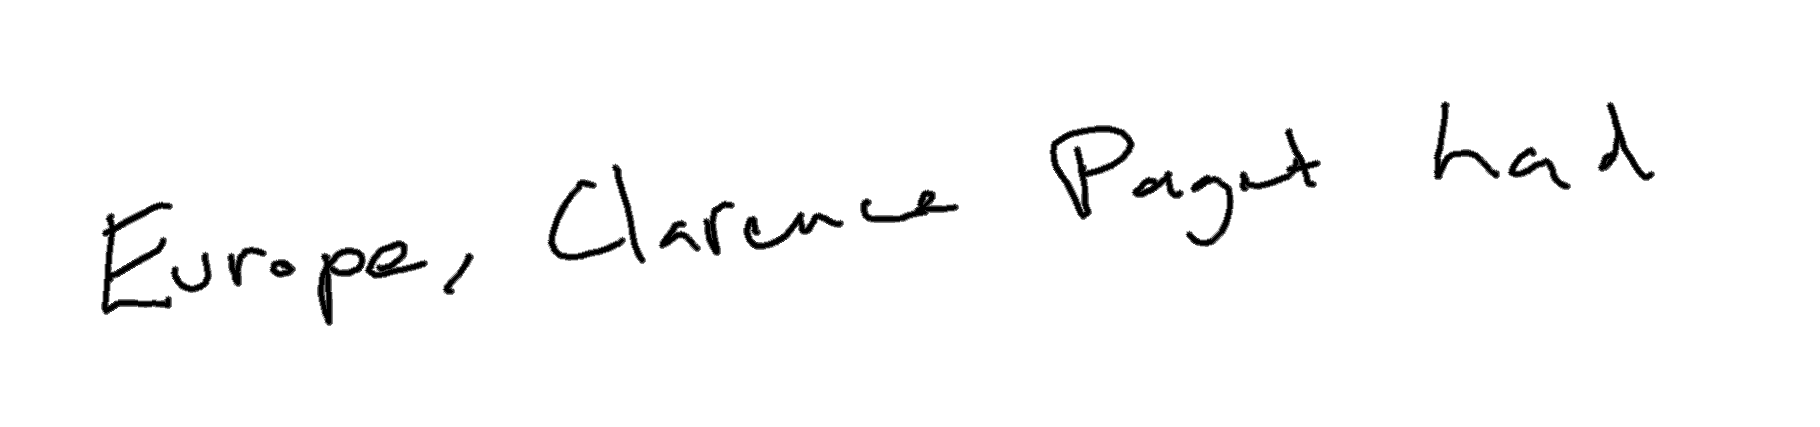 Europe, Clarence Paget had